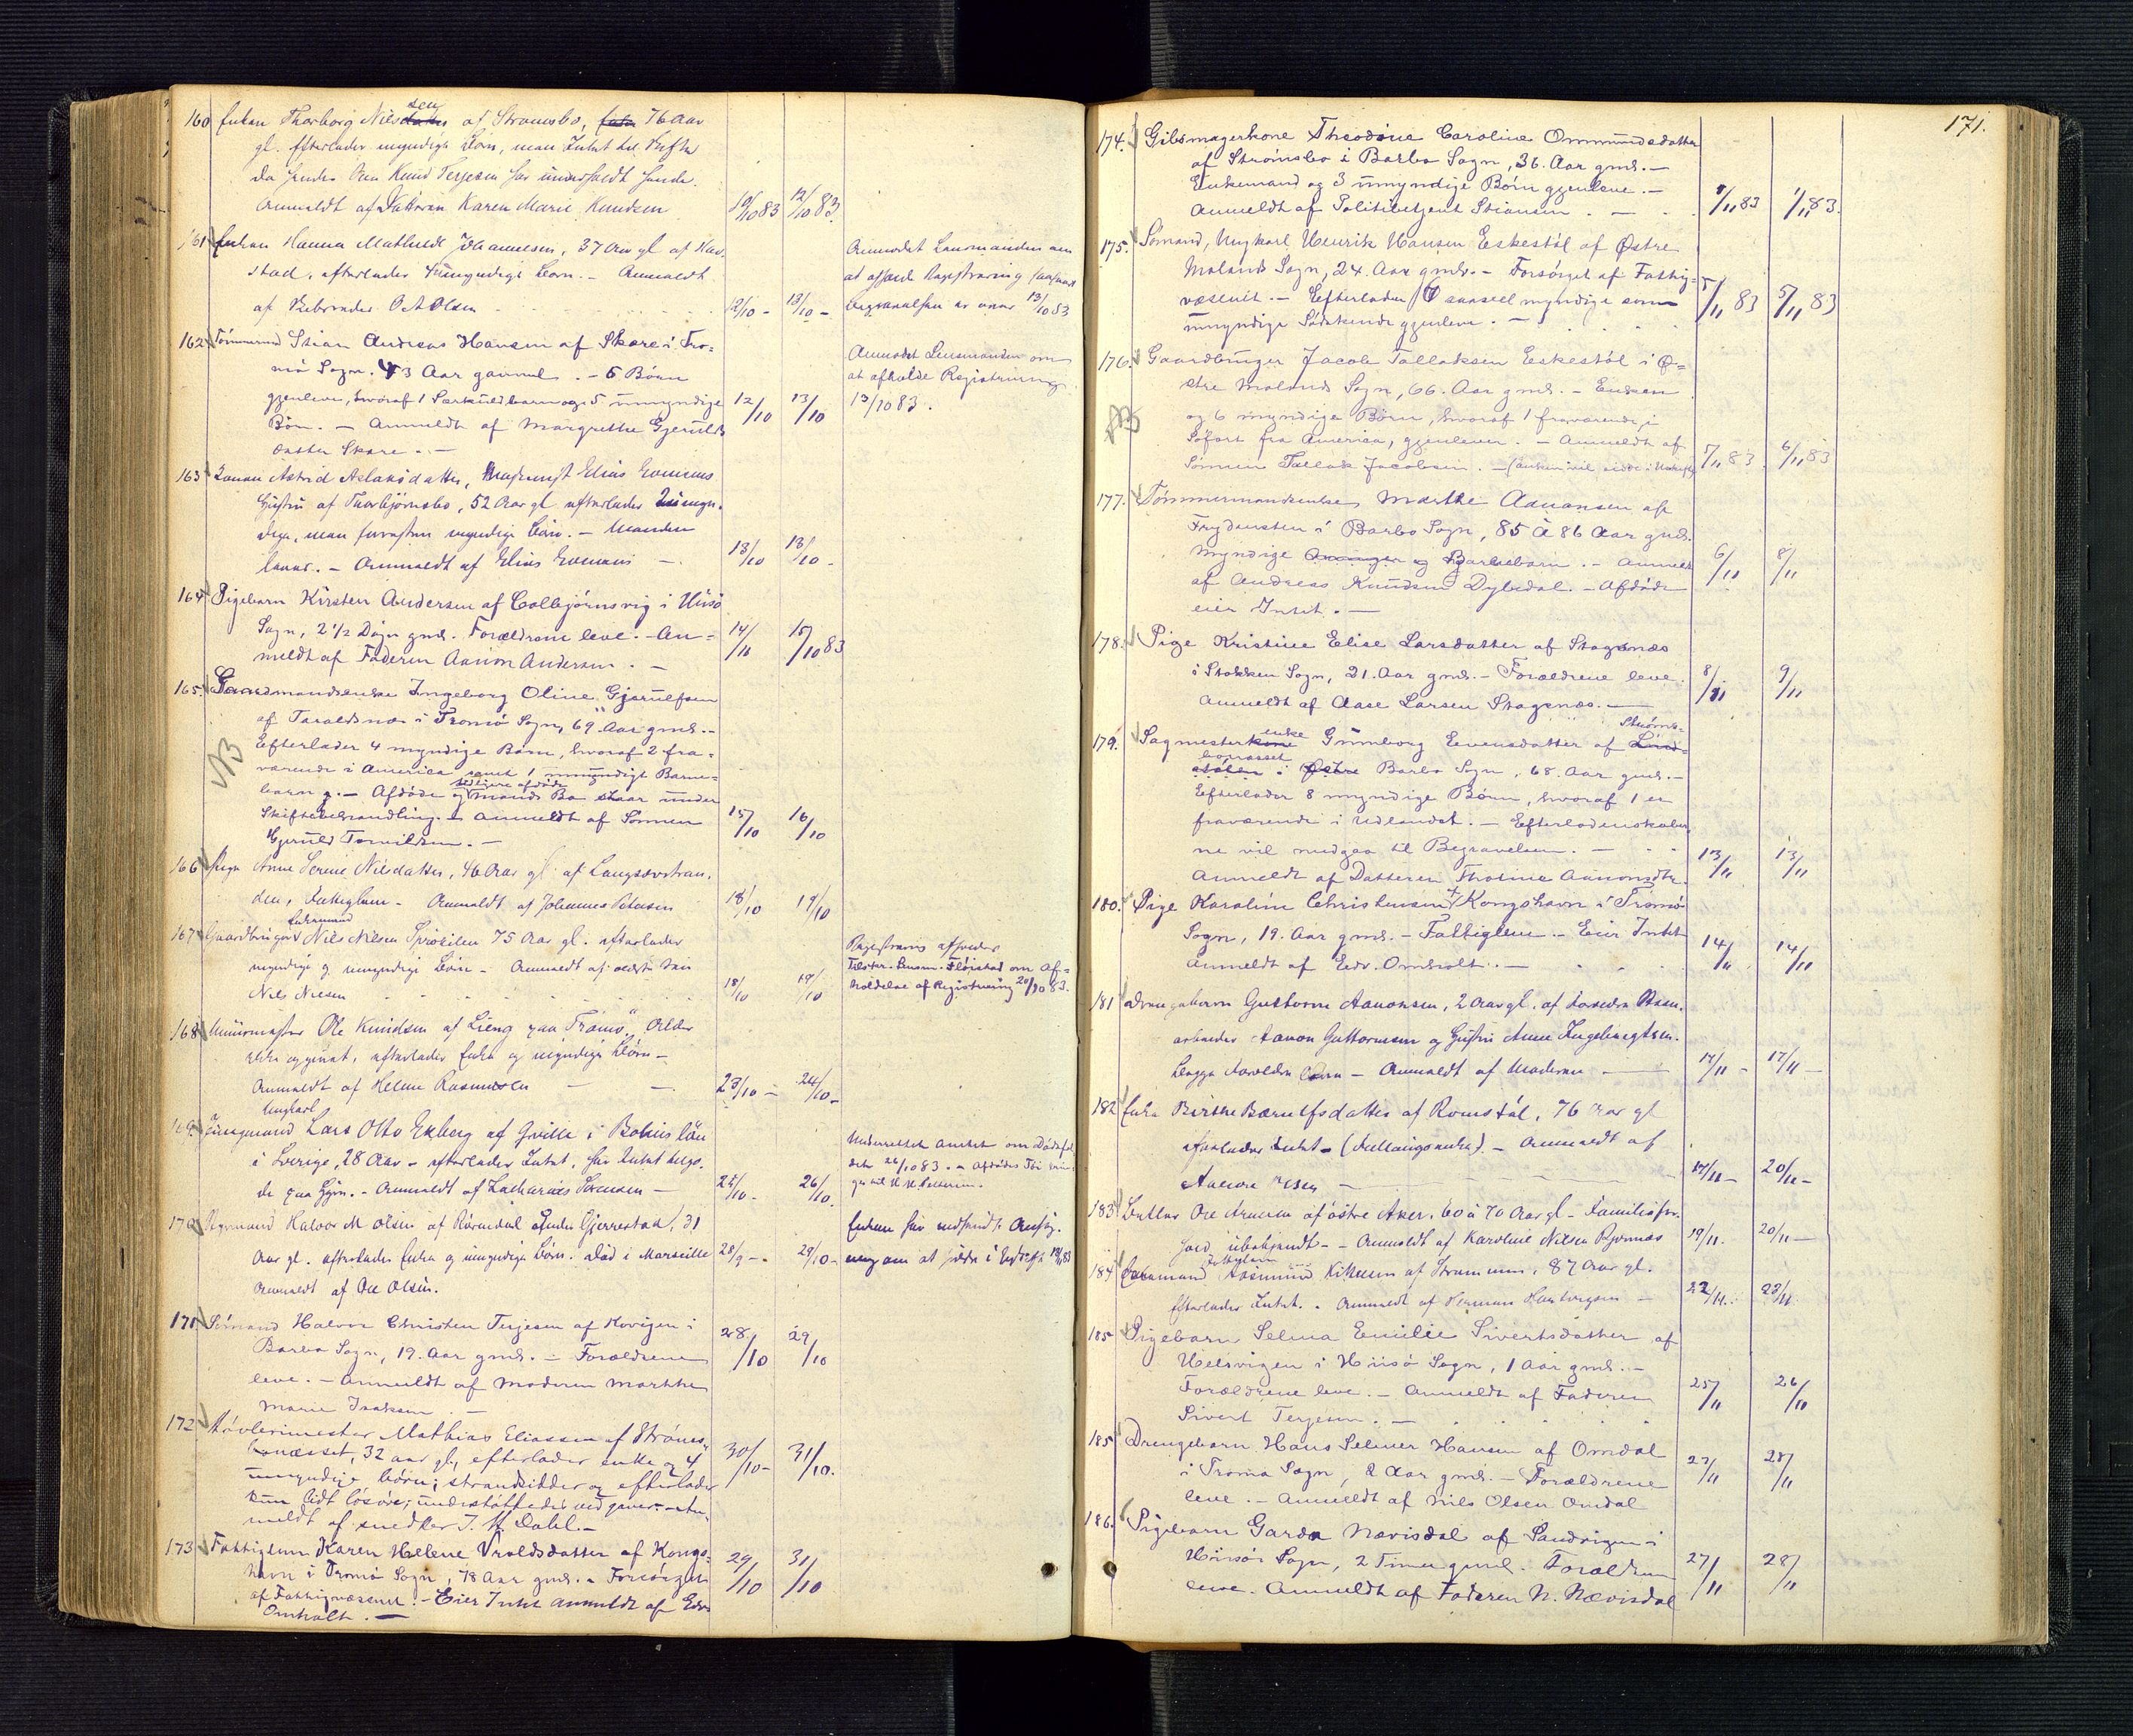 160 Enken Thorborg Nilsdatter sen af Strømsbo, 76 Aar
gl. Efterlader myndige Børn, men Intet til Skifte
da hendes Søn Knud Terjesen har underholdt hende.
Anmeldt af Datteren Karen Marie Knudsen 10/10 83 12/10 83.
161 Enken Hanna Mathilde Johannesen, 37 Aar gl af Hav-
stad, efterlader 4 umyndige Børn. - Anmeldt
af O. A. Olsen 12/10 - 13/10 -
Anmodet Lensmanden om
at afholde Registrering
Begravelsen er 13/10 83
162 Tømmermand Stian Andreas Hansen af Skare i Tro-
mø Sogn. 43 Aar gammel. - 6 Børn
gjenleve, hvoraf 1 Særkuldbarn og 5 umyndige
Børn. - Anmeldt af Margrethe Gjeruld-
datter Skare. - 12/10 13/10
Anmodet Lensmanden om
at afholde Registrering
13/10 83.
163 Konen Astrid Aslaksdatter, Elias Evensens
Hustru af Thorbjørnsbo, 52 Aar gl efterlader umyn-
dige, men forresten myndige Børn. - Manden
lever. - Anmeldt af Elias Evensen - 13/10 13/10 -
164 Pigebarn Kirsten Andersen af Colbjørnsvig i Hisø
Sogn, 2 1/2 Døgn gml. Forældrene leve. - An-
meldt af Faderen Aanon Andersen. - 14/10 15/10 83
165. Gaardmandsenke Ingeborg Oline Gjerulfsen
af Taraldsnæs i Tromø Sogn, 69 Aar gml. -
NB
Efterlader 4 myndige Børn, hvoraf 2 fra-
værende i America samt 1 umyndigt Barne-
barn. - Afdøde og tidligere afdøde mands Bo staar under
Skiftebehandling. - Anmeldt af Sønnen
Gjeruld Torvildsen. - 15/10 16/10
166 Pige Anne Serine Nilsdatter, 46 Aar gl af Langsævstran-
den, Fattiglem - Anmeldt af Johannes Petersen 18/10 19/10
167 Gaardbruger Enkemand Nils Nilsen Sprøkilen 75 Aar gl. efterlader
myndige og umyndige Børn - Anmeldt af ældste Søn
Nils Nielsen 18/10 19/10
Tilskr. Lensm. Fløistad om af-
holdelse af Registrering 20/10 83.
168 Muurmester Ole Knudsen af Lieng paa Tromø, Alder
ikke opgivet, efterlader Enke og myndige Børn -
Anmeldt af Helene Rasmussen - 23/10 - 24/10 -
169 Jungmand Ungkarl Lars Otto Ekberg af Qville i Bohuslän
i Sverige, 28 Aar - efterlader Intet, har Intet
Anmeldt af Zacharias Sørensen - 25/10 - 26/10.
Underrettet Amtet om Dødsfal-
det 26/10 83. - Afdødes Tøi
170 Styrmand Halvor M. Olsen af Rørendal Gjerrestad, 31
Aar gl. efterlader Enke og umyndige Børn. Død i Marseille 28/9 - 29/10 -
Anmeldt af Ole Olsen.
Enken har indsendt Ansøg-
ning om at sidde i uskiftet
171 Sømand Halvor Christen Terjesen af Kovigen i
Barbo Sogn, 19. Aar gml. - Forældrene
leve. - Anmeldt af Moderen Marthe
Marie Isaksen - 28/10 29/10
172 Høvlerimester Mathias Eliassen af Strøms-
bonæsset, 32 aar gl., efterlader enke og 4
umyndige børn; strandsidder og efterlader
kun lidt løsøre; understøttedes ved gaver. - An-
meldt af snedker J. M. Dahl. - 30/10 - 31/10.
173 Fattiglem Karen Helene Vroldsdatter af Kongs-
havn i Tromø Sogn, 78 Aar gml. - Forsørget
af Fattigvæsenet. - Eier Intet Anmeldt af Edv.
Omholt. - 29/10 31/10
171.
174. Gibsmagerkone Theodine Caroline Ommundsdatter
af Strømsbo i Barbo Sogn, 36. Aar gml. -
Enkemand og 3 umyndige Børn gjenleve. -
Anmeldt af Politibetjent Stiansen. - 1/11 83 1/11 83.
175. Sømand, Ungkarl Henrik Hansen Eskestøl af Østre
Molands Sogn, 24. Aar gml. - Forsørget af Fattig-
væsenet. - Efterlader saavel myndige som
umyndige Sødskende gjenleve. - 5/11 83 5/11 83
176. Gaardbruger Jacob Tallaksen Eskestøl i Ø-
stre Molands Sogn, 66. Aar gml. - Enken
NB
og 6 myndige Børn, hvoraf 1 fraværende, i
Søfart fra America, gjenlever. - Anmeldt af
Sønnen Tallak Jacobsen. - (Enken vil sidde i Uskifte) 5/11 83. 6/11 83
177. Tømmermandsenke Marthe Aanonsen af
Frydensten i Barbo Sogn, 85 à 86 Aar gml.
Myndige Barnebarn. - Anmeldt
af Andreas Knudsen Dybedal. - Afdøde
eier Intet. - 6/11 8/11
178. Pige Kristine Elise Larsdatter af Stagenæs
i Stokken Sogn, 21. Aar gml. - Forældrene leve.
Anmeldt af Aase Larsen Stagenæs. - 8/11 9/11
179. Sagmesterkone enke Gunborg Evensdatter af Strøms-
bonæsset i Østre Barbo Sogn, 68. Aar gml. -
Efterlader 8 myndige Børn, hvoraf 1 er
fraværende i Udlandet. - Efterladenskaber-
ne vil medgaa til Begravelsen. -
Anmeldt af Datteren Thomine Aanonsdtr. 13/11 13/11
180. Pige Karoline Christensen Kongshavn i Tromø
Sogn, 19. Aar gml. - Fattiglem. - Eier Intet
Anmeldt af Edv. Omholt. - 14/11 14/11
181 Drengebarn Guttorm Aanonsen, 2 Aar gl. af Forældre
arbeider Aanon Guttormsen og Hustru Anne Ingebregtsen.
Begge Forældre leve - Anmeldt af Moderen - 17/11 - 17/11 -
182 Enke Birthe Bærulfsdatter af Romstøl, 76 Aar gl
efterlader Intet - - Anmeldt af
17/11 - 20/11 -
183 Ole Arnesen af Østre Aker. 60 à 70 Aar gl - Familiefor-
hold ubekjendt - - Anmeldt af Karoline Nilsen 19/11. 20/11 -
184 Enkemand Fattiglem Rasmund Kittelsen af Strømmen, 87 Aar gl.
Efterlader Intet. - Anmeldt af Herman - 22/11. 23/11
185 Pigebarn Selma Emilie Sivertsdatter af
Uelsvigen i Hisø Sogn, 1 Aar gml. -
Forældrene leve. - Anmeldt af Faderen
Sivert Terjesen. - 25/11 26/11
185 Drengebarn Hans Selmer Hansen af Omdal
i Tromø Sogn, 2 Aar gml. - Forældrene
leve. - Anmeldt af Nils Olsen Omdal 27/11 28/11
186. Pigebarn Garda Nævisdal af Sandvigen i
Hisø Sogn, 2 Timer gml. Forældrene
leve. Anmeldt af Faderen N. Nævisdal 27/11 28/11